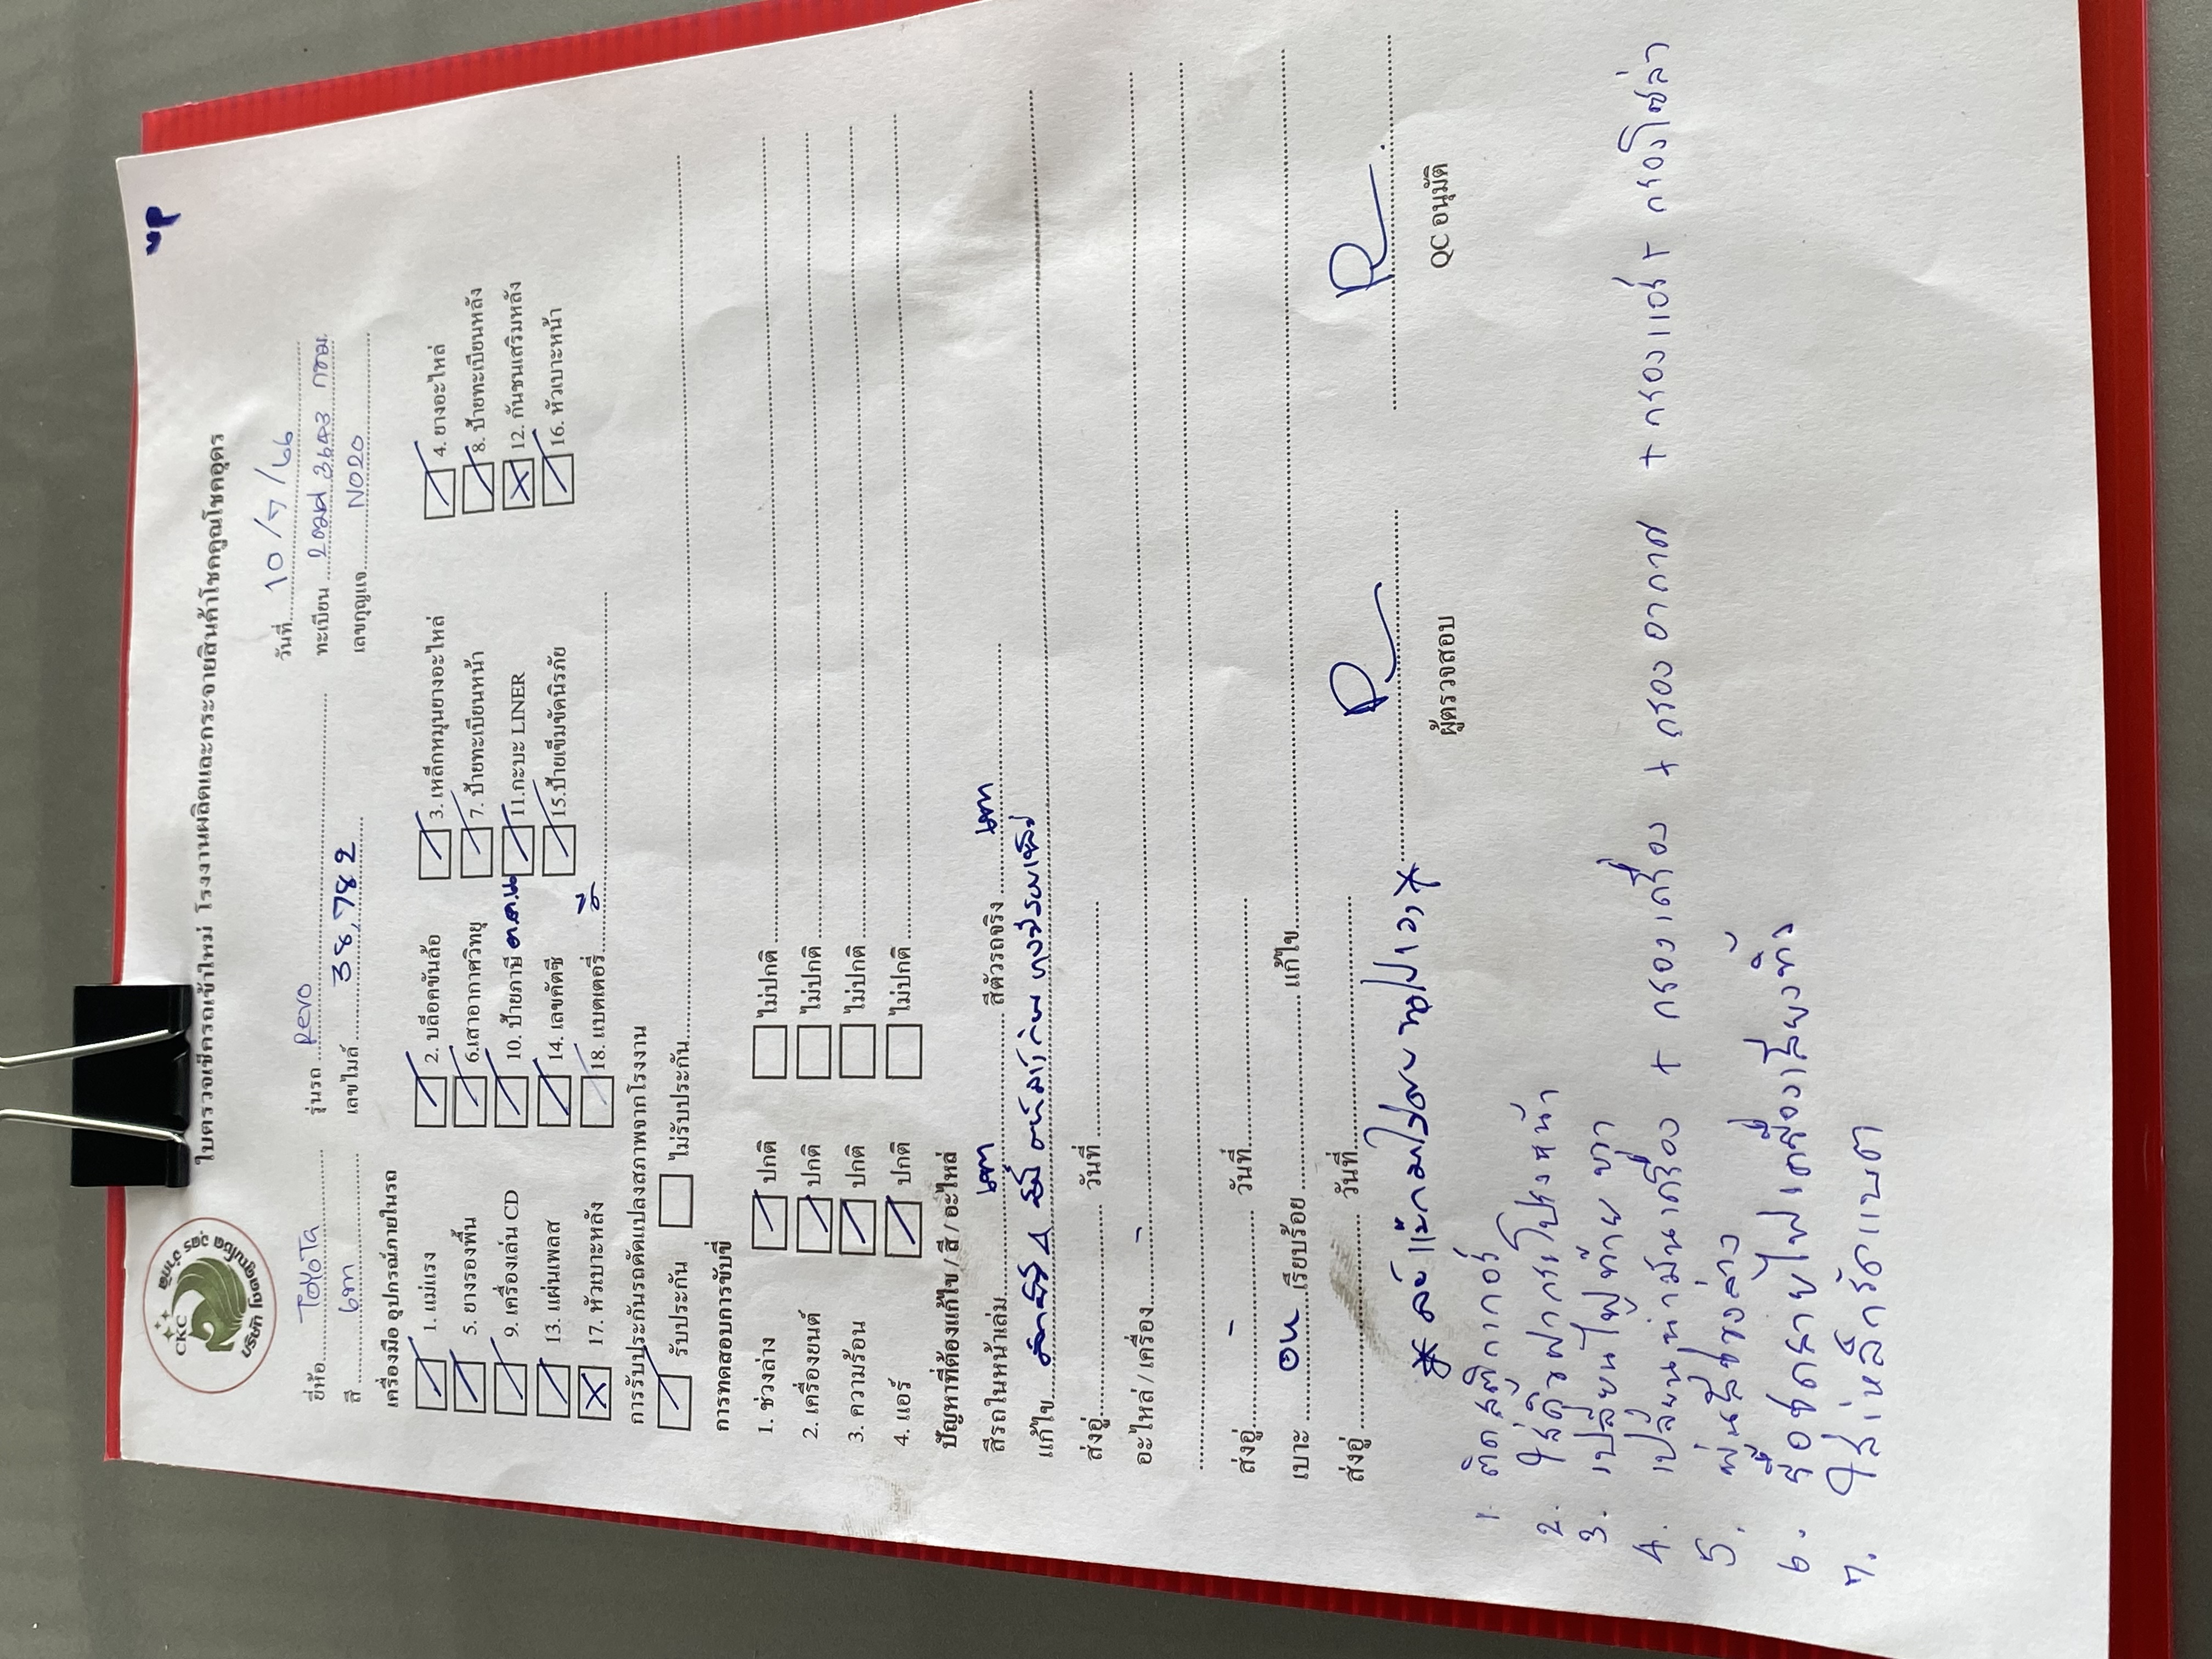 up
CKC
บริษัท โชคคูณโชค อุดร จำกัด
ใบตรวจเช็ครถเข้าใหม่ โรงงานผลิตและกระจายสินค้าโชคคูณโชคอุดร
วันที่ 10/7/66
ยี่ห้อ ToYoTa รุ่นรถ Revo ทะเบียน
สี เทา เลขไมล์ 38,782 เลขกุญแจ N020
เครื่องมือ อุปกรณ์ภายในรถ
1. แม่แรง 2. บล็อคขันล้อ 3. เหล็กหมุนยางอะไหล่ 4. ยางอะไหล่
5. ยางรองพื้น 6.เสาอากาศวิทยุ 7. ป้ายทะเบียนหน้า 8. ป้ายทะเบียนหลัง
9. เครื่องเล่น CD 10. ป้ายภาษี ต.ค.น 11.กะบะ LINER 12. กันชนเสริมหลัง
13. แผ่นเพลส 14. เลขคัตซี 15.ป้ายเข็มขัดนิรภัย 16. หัวเบาะหน้า
17. หัวเบาะหลัง 18. แบตเตอรี่
การรับประกันรถดัดแปลงสภาพจากโรงงาน
รับประกัน ไม่รับประกัน
การทดสอบการขับขี่
1. ช่วงล่าง ปกติ ไม่ปกติ
2. เครื่องยนต์ ปกติ ไม่ปกติ
3. ความร้อน ปกติ ไม่ปกติ
4. แอร์ ปกติ ไม่ปกติ
ปัญหาที่ต้องแก้ไข / สี / อะไหล่
สีรถในหน้าเล่ม เทา สีตัวรถจริง เทา
แก้ไข
ส่งอู่ วันที่
อะไหล่ / เครื่อง -
ส่งอู่ - วันที่
เบาะ เรียบร้อย แก้ไข
ส่งอู่ วันที่
ผู้ตรวจสอบ QC อนุมัติ
1. ติดสติกเกอร์
2. ใส่คิ้วฝากระโปรงหน้า
3. เปลี่ยนไฟท้าย ขวา
4. เปลี่ยนน้ำมันเครื่อง + กรองเครื่อง + กรองอากาศ + กรองแอร์ + กรองโซล่า
5. พ่นสีช่วงล่าง
6. รื้อชุดสายไฟเครื่องเสียงทิ้ง
7. ใส่เหล็กรัดแบต